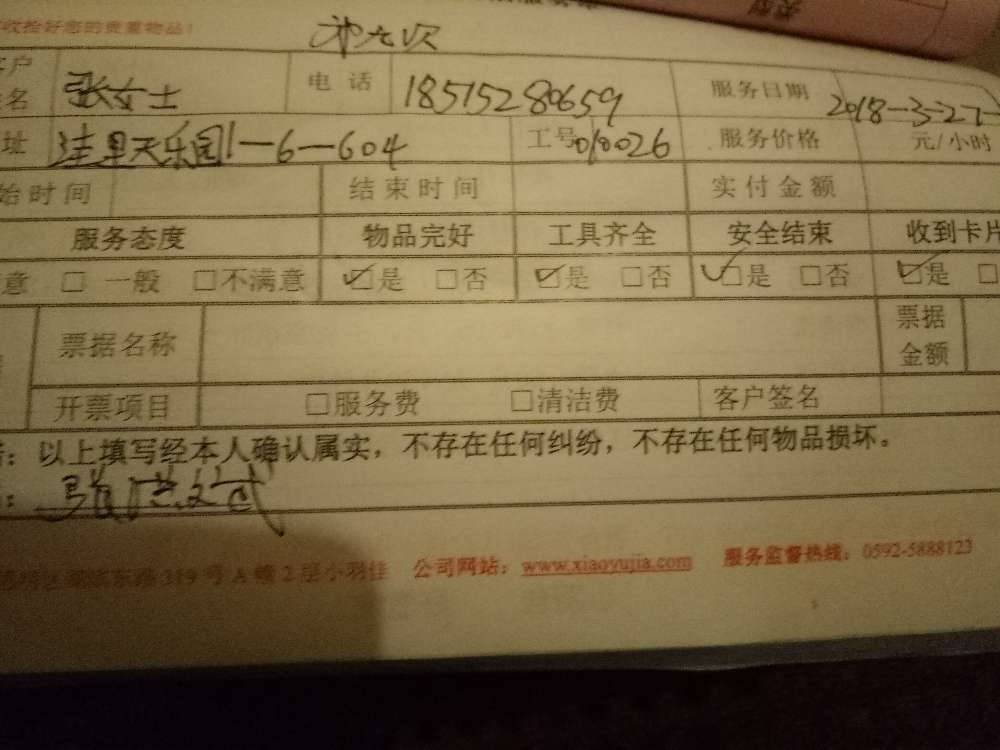 收拾好您的贵重物品!
第九次
客户姓名 张女士 电话 18515280659 服务日期 2018-3-27
址 洼里天乐园1-6-604 工号 010026 服务价格 元/小时
始时间 结束时间 实付金额
服务态度 物品完好 工具齐全 安全结束 收到卡片
意 □ 一般 □不满意 ☑是 □否 ☑是 □否 ☑是 □否 ☑是 □
票据名称 票据金额
开票项目 □服务费 □清洁费 客户签名
:以上填写经本人确认属实,不存在任何纠纷,不存在任何物品损坏。
东路319号A幢2层小羽佳 公司网站:www.xiaoyujia.com 服务监督热线:0592-5888123